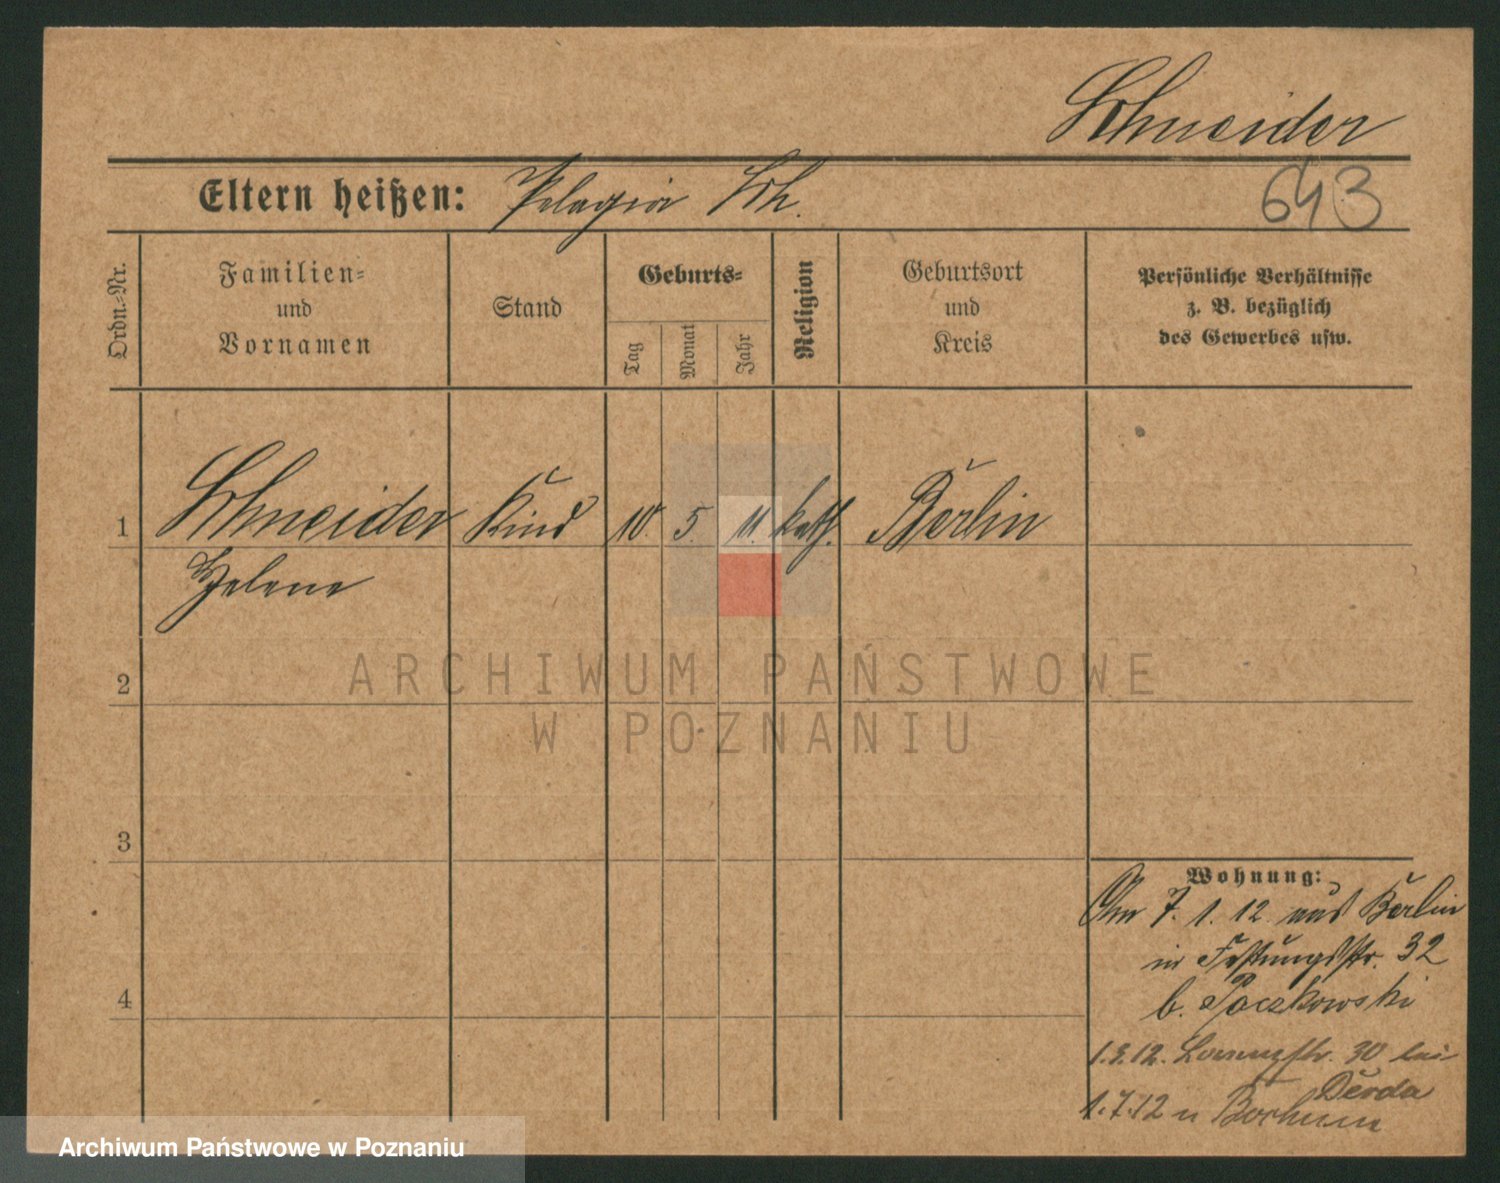 Schneider
Eltern heißen: Pelagia Sch.
643
Ordn.-Nr.
Familien-
und
Vornamen
Stand
Geburts-
Tag
Monat
Jahr
Religion
Geburtsort
und
Kreis
Persönliche Verhältnisse
z. B. bezüglich
des Gewerbes usw.
1 Schneider Kind 10. 5. 11. kath. Berlin
Helene
2
3
4
Wohnung:
Am 7. 1. 12 aus Berlin
in Festungsstr. 32
b. Paczkowski
1.3.12. 30 bei
Derda
1.7.12 n Bochum
ARCHIWUM PAŃSTWOWE
W POZNANIU
Archiwum Państwowe w Poznaniu